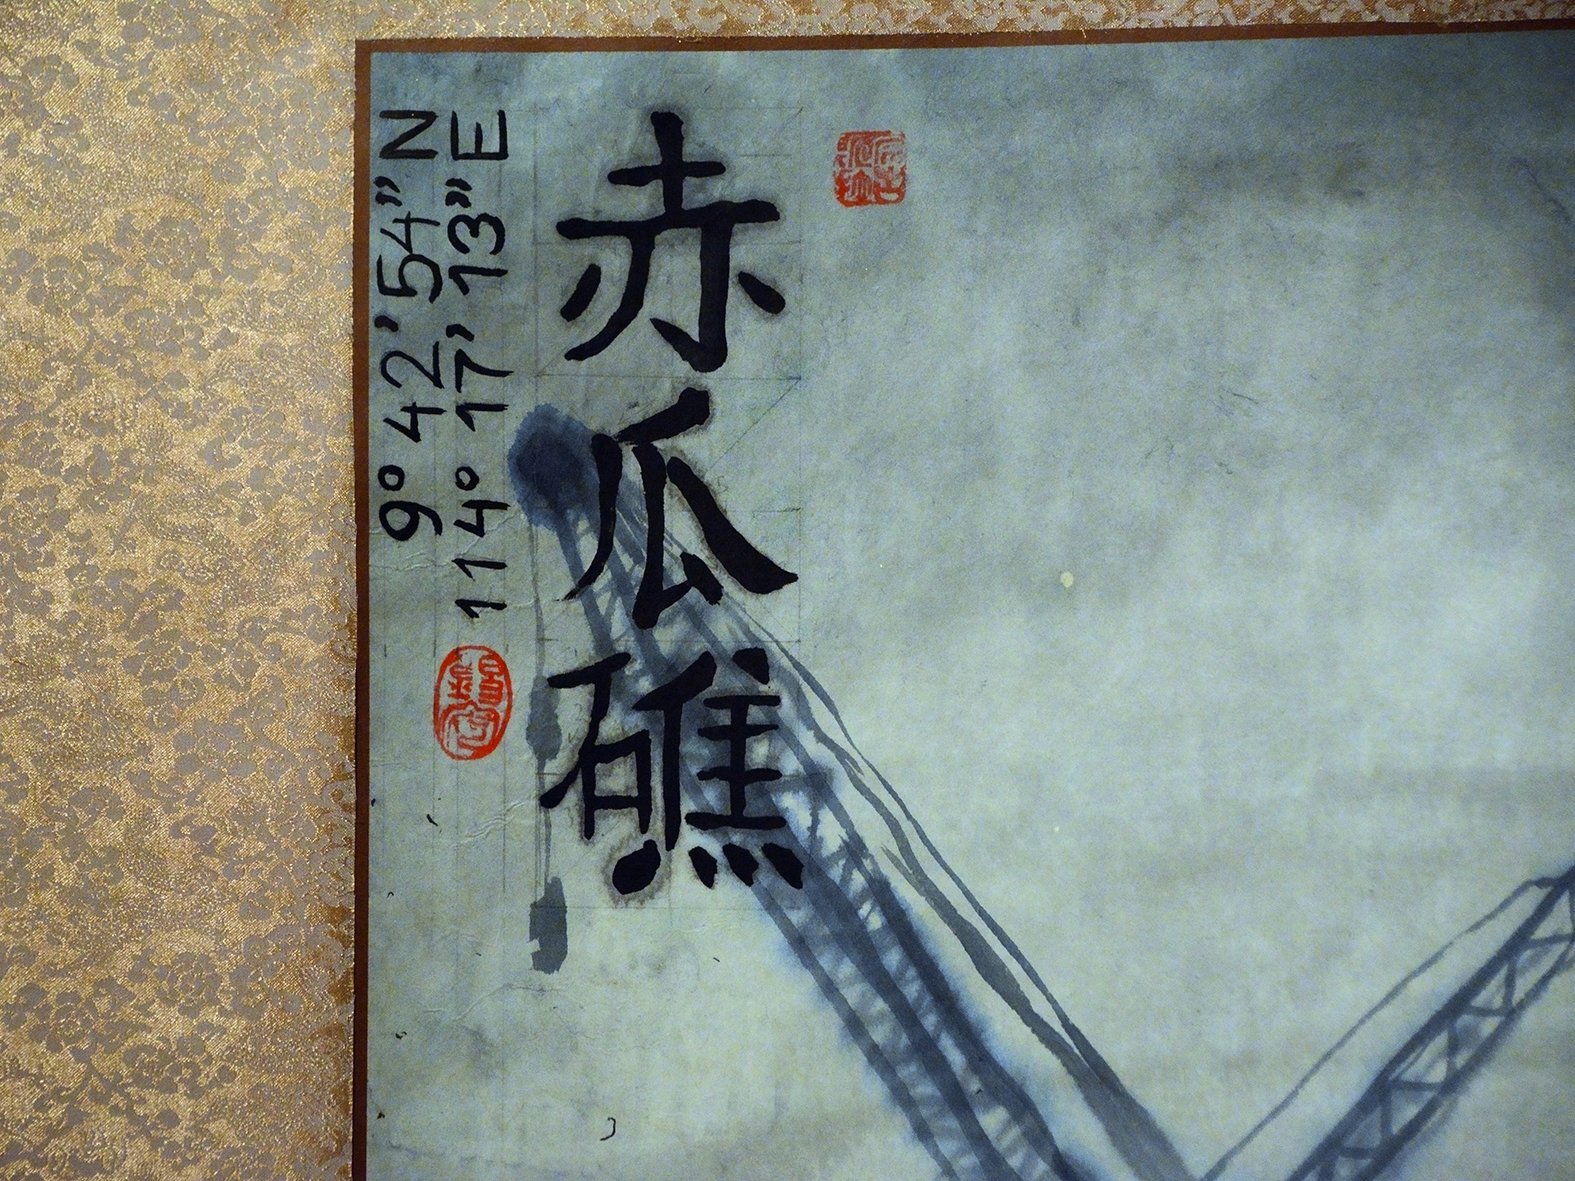 9° 42' 54" N
114° 17' 13" E
赤瓜礁